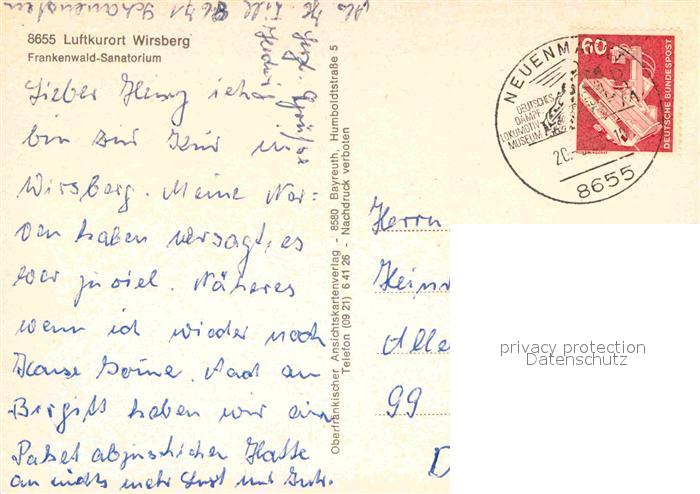 8655 Luftkurort Wirsberg
Frankenwald-Sanatorium
Lieber Heinz ich
bin zur Kur in
Wirsberg. Meine Ner=
ven haben versagt, es
war zu viel. Näheres
wenn ich wieder nach
Hause komme. Auch an
Birgitt haben wir ein
Paket abgeschickt Hatte
an nichts mehr Lust und
Herzl. Grüße
Oberfränkischer Ansichtskartenverlag - 8580 Bayreuth, Humboldtstraße 5
Telefon (09 21) 6 41 26 - Nachdruck verboten
NEUENMARKT
DEUTSCHES
DAMPF
LOKOMOTIV
MUSEUM
20.
8655
60
DEUTSCHE BUNDESPOST
Herrn
Hein
Alle
99
D
privacy protection
Datenschutz